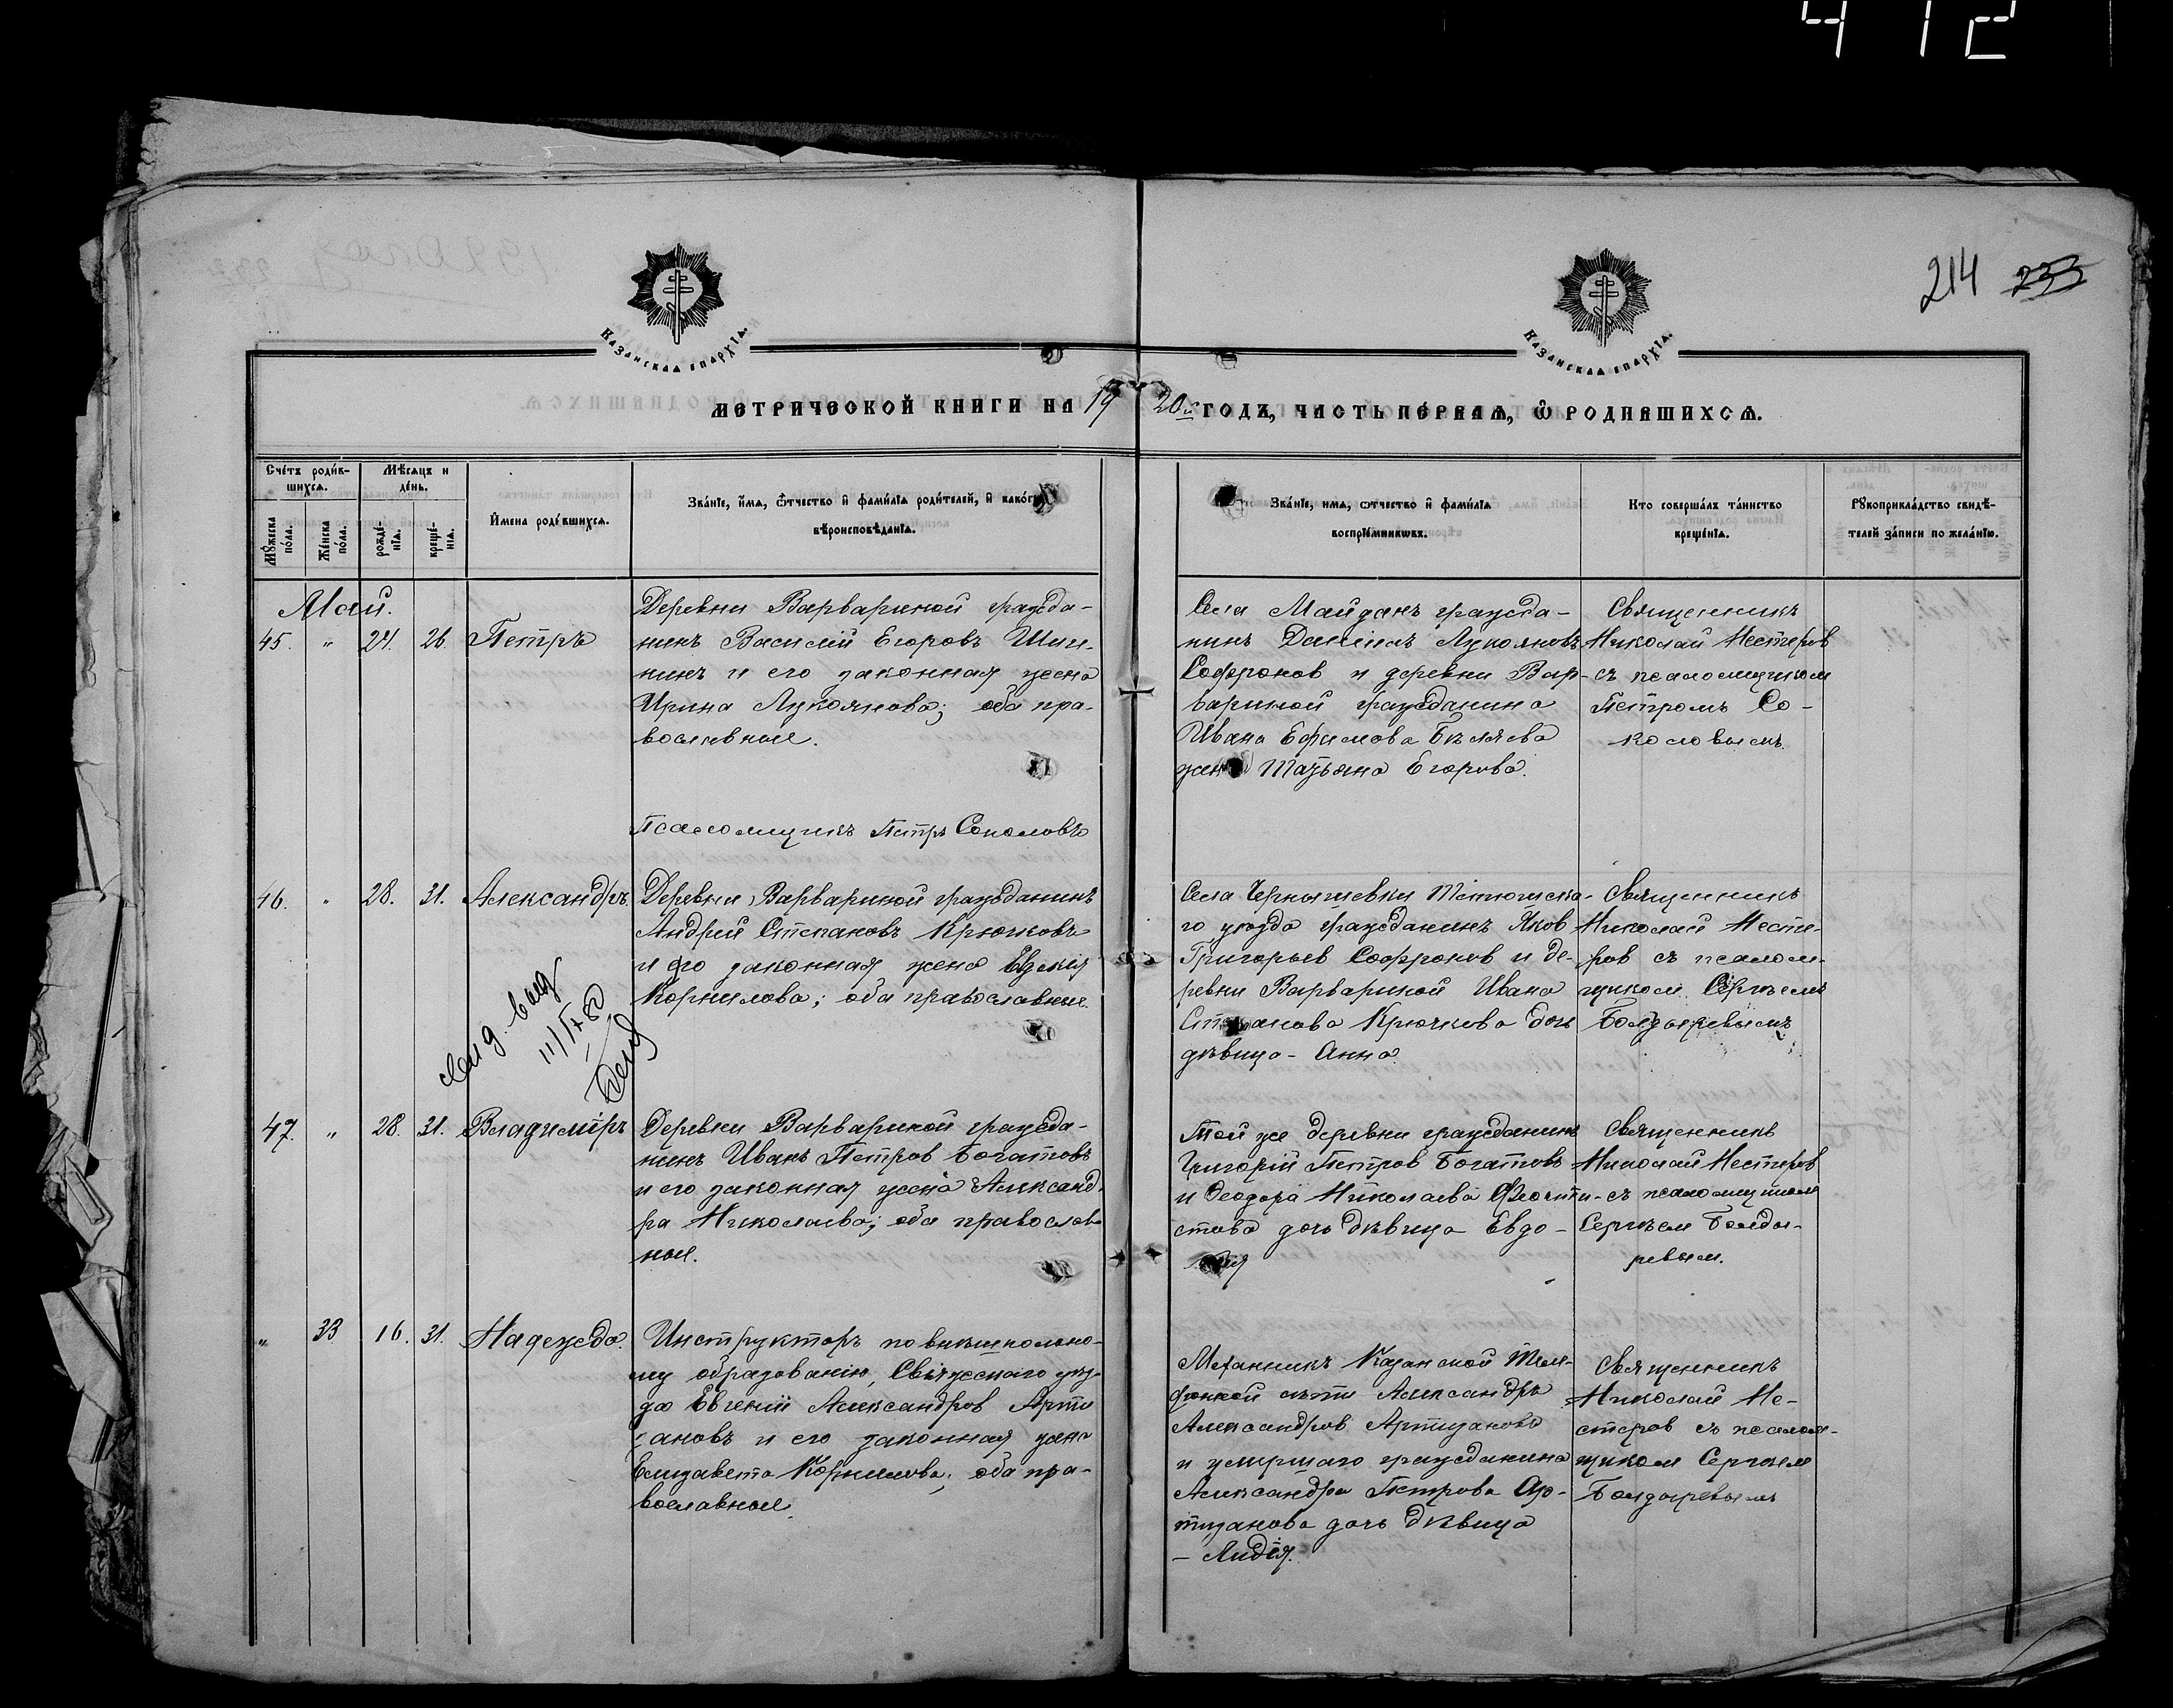 412
214 233
Казанская епархїѧ.
Казанская епархїѧ.
МЕТРИЧЕСКОЙ КНИГИ НА 1920й ГОДЪ, ЧАСТЬ ПЕРВАЯ, Ѽ РОДИВШИХСѦ.
Счетъ родив-
шихсѧ.
Мѣсѧцъ и
день.
Мꙋжеска
пола.
Женска
пола.
рожде-
нїѧ.
креще-
нїѧ.
Имена родившихсѧ.
Званїе, имѧ, ѿчество и фамилїѧ родителей, и какогѡ
вѣроисповѣданїѧ.
Званїе, имѧ, ѿчество и фамилїѧ
воспрїемникѡвъ.
Кто совершалъ таинство
крещенїѧ.
Рꙋкоприкладство свидѣ-
телей записи по желанїю.
Май.
45. " 24. 26. Петръ
Деревни Варвариной гражда-
нинъ Василій Егоровъ
и его законная жена
Ирина Лукоянова; оба пра-
вославные.
Псаломщикъ Петръ Соколовъ
Села Майданъ гражда-
нинъ Даніилъ Лукояновъ
Софронов и деревни Вар-
вариной гражданина
Ивана Ефимова Бѣляева
жена Татьяна Егорова.
Священникъ
Николай Нестеров
съ псаломщиком
Петромъ Со-
коловымъ.
46. " 28. 31. Александръ.
Деревни Варвариной гражданинъ
Андрей Степановъ Крючковъ
и его законная жена
Корнилова; оба православные.
11/IX 80
Села Чернышевки Тетюшска-
го уѣзда гражданинъ Яков
Григорьев Софронов и де-
ревни Варвариной Ивана
Степанова Крючкова дочь
дѣвица - Анна
Священникъ
Николай Несте-
ров съ псалом-
щиком Сергѣемъ
Болдыревымъ
47. " 28. 31. Владиміръ
Деревни Варвариной гражда-
нинъ Иванъ Петров Богатовъ
и его законная жена Александ-
ра Николаева; оба православ-
ные.
Той же деревни гражданинъ
Григорій Петров Богатовъ
и Ѳеодора Николаева Ѳеокти-
стова дочь дѣвица Евдо-
кія
Священникъ
Николай Нестеров
съ псаломщиком
Сергѣем Болды-
ревым.
" 33 16. 31. Надежда.
Инструкторъ по внѣшкольно-
му образованію, Свіяжскаго уѣз-
да Евгеній Александров Арти
зановъ и его законная жена
Елизавета Корнилова; оба пра-
вославные.
Механикъ Казанской Теле-
фонной сѣти Александръ
Александров Артизановъ
и умершаго гражданина
Александра Петрова Ар-
тизанова дочь дѣвица
- Лидія.
Священникъ
Николай Не-
стеров съ псалом-
щиком Сергѣем
Болдыревымъ